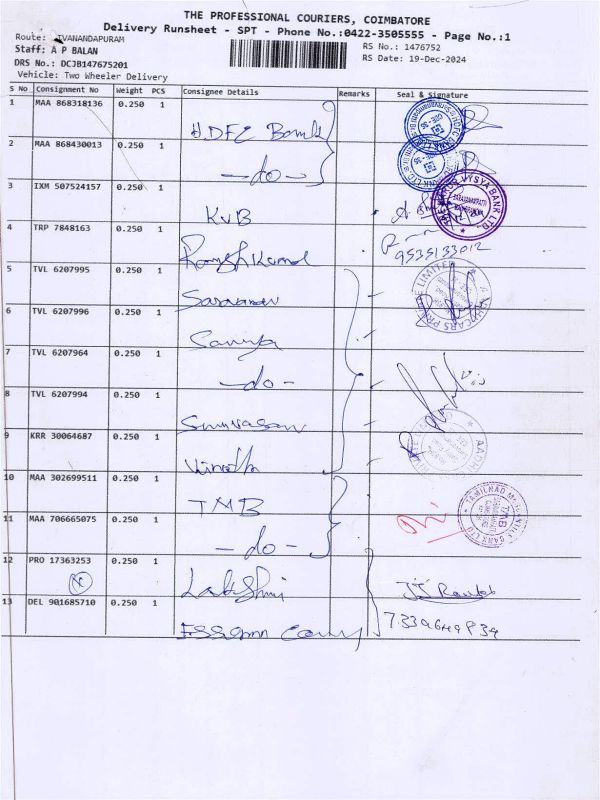 THE PROFESSIONAL COURIERS, COIMBATORE
Delivery Runsheet - SPT - Phone No.:0422-3505555 - Page No.:1
Route: IVANANDAPURAM
Staff: A P BALAN
RS No.: 1476752
DRS No.: DCJB147675201
RS Date: 19-Dec-2024
Vehicle: Two Wheeler Delivery
S No Consignment No Weight PCS Consignee Details Remarks Seal & Signature
1 MAA 868318136 0.250 1 HDFC Bank
2 MAA 868430013 0.250 1 -do-
3 IXM 507524157 0.250 1 KVB
4 TRP 7848163 0.250 1 9535133012
5 TVL 6207995 0.250 1 Saravanan
6 TVL 6207996 0.250 1
7 TVL 6207964 0.250 1 -do-
8 TVL 6207994 0.250 1 Srinivasan
9 KRR 30064687 0.250 1 Vinoth
10 MAA 302699511 0.250 1 TMB
11 MAA 706665075 0.250 1 -do-
12 PRO 17363253 0.250 1 Lakshmi
13 DEL 901685710 0.250 1